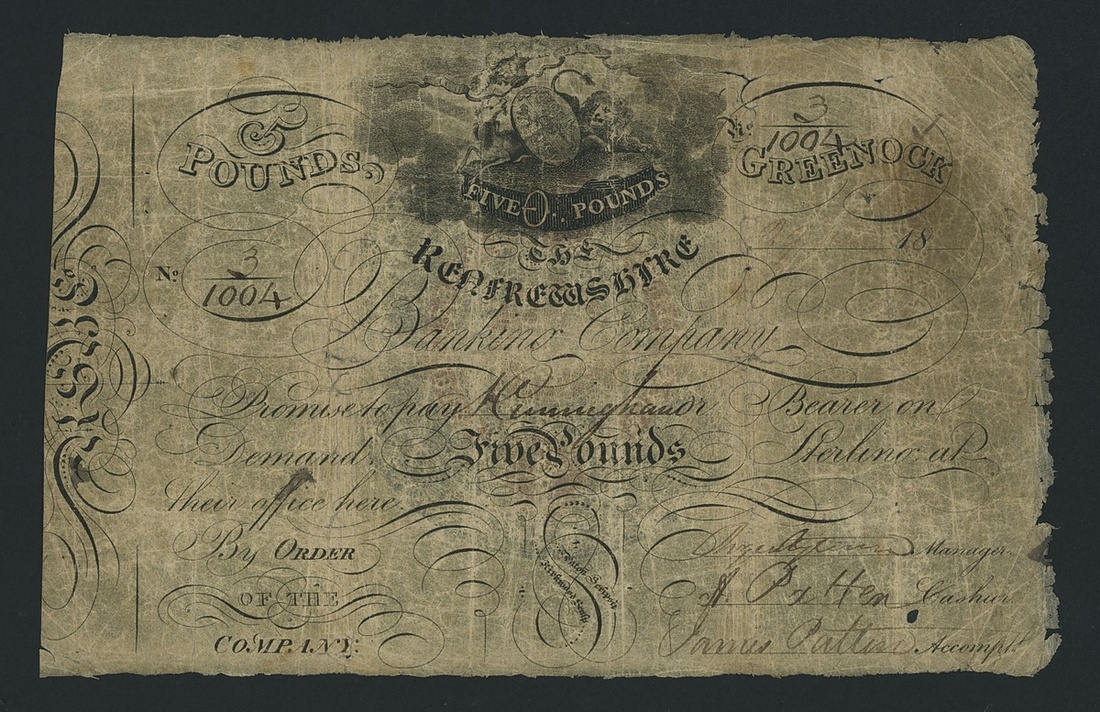 5
POUNDS,
FIVE POUNDS
No. 3
1004
GREENOCK
18
No. 3
1004
THE
RENFREWSHIRE
Banking Company
Promise to pay or Bearer on
Demand, Five Pounds Sterling at
their office here
By ORDER
OF THE
COMPANY.
Manager.
Cashier
James Accompt.